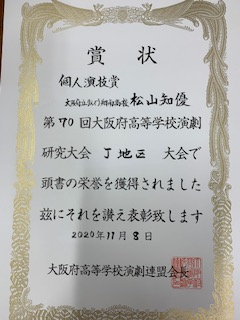 賞状
個人演技賞
大阪府立 高校 松山知優
第70回大阪府高等学校演劇
研究大会 J地区 大会で
頭書の栄誉を獲得されました
茲にそれを讃え表彰致します
2020年11月8日
大阪府高等学校演劇連盟会長